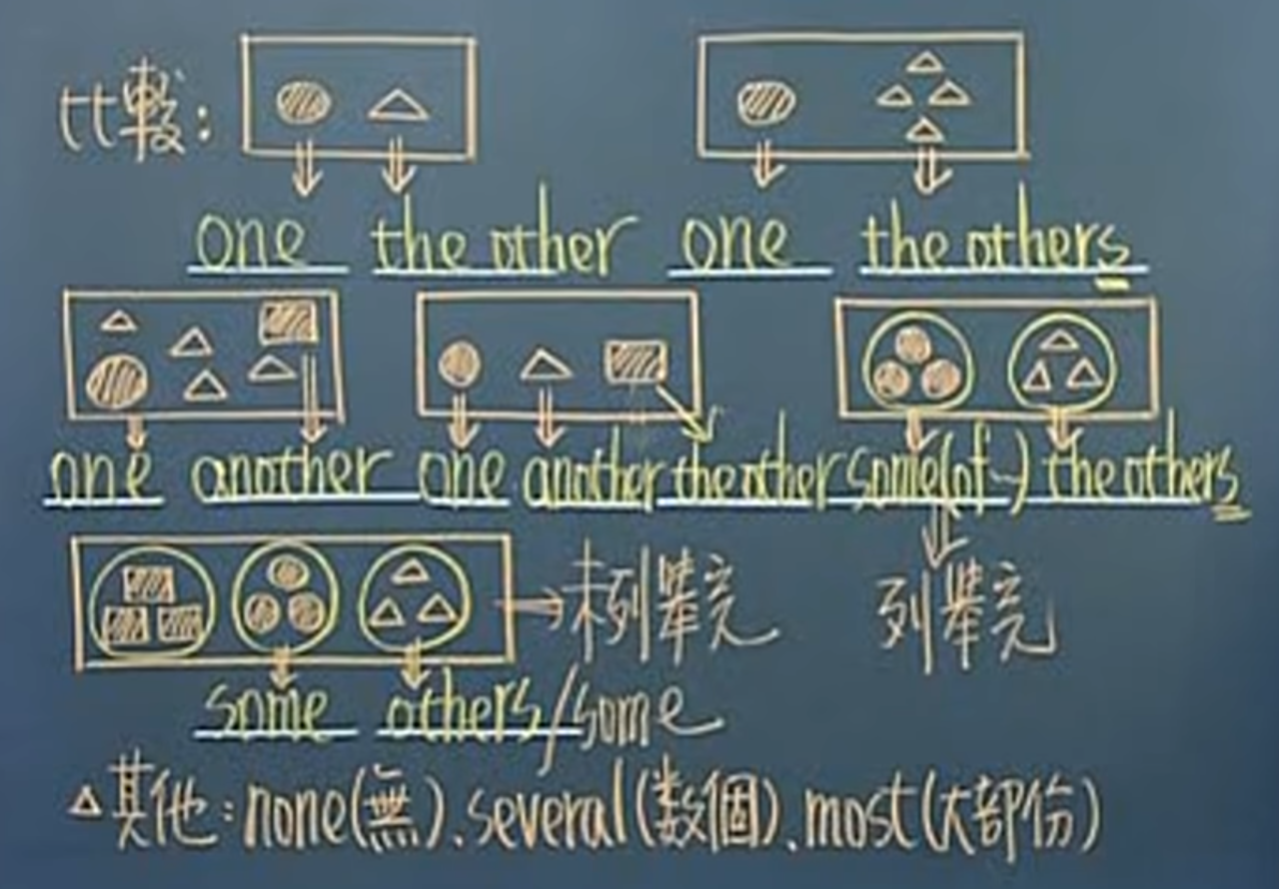 比較:
one the other one the others
one another one another the other some(of~) the others
→未列舉完 列舉完
some others/some
△其他:none(無).several(数個)、most(大部份)